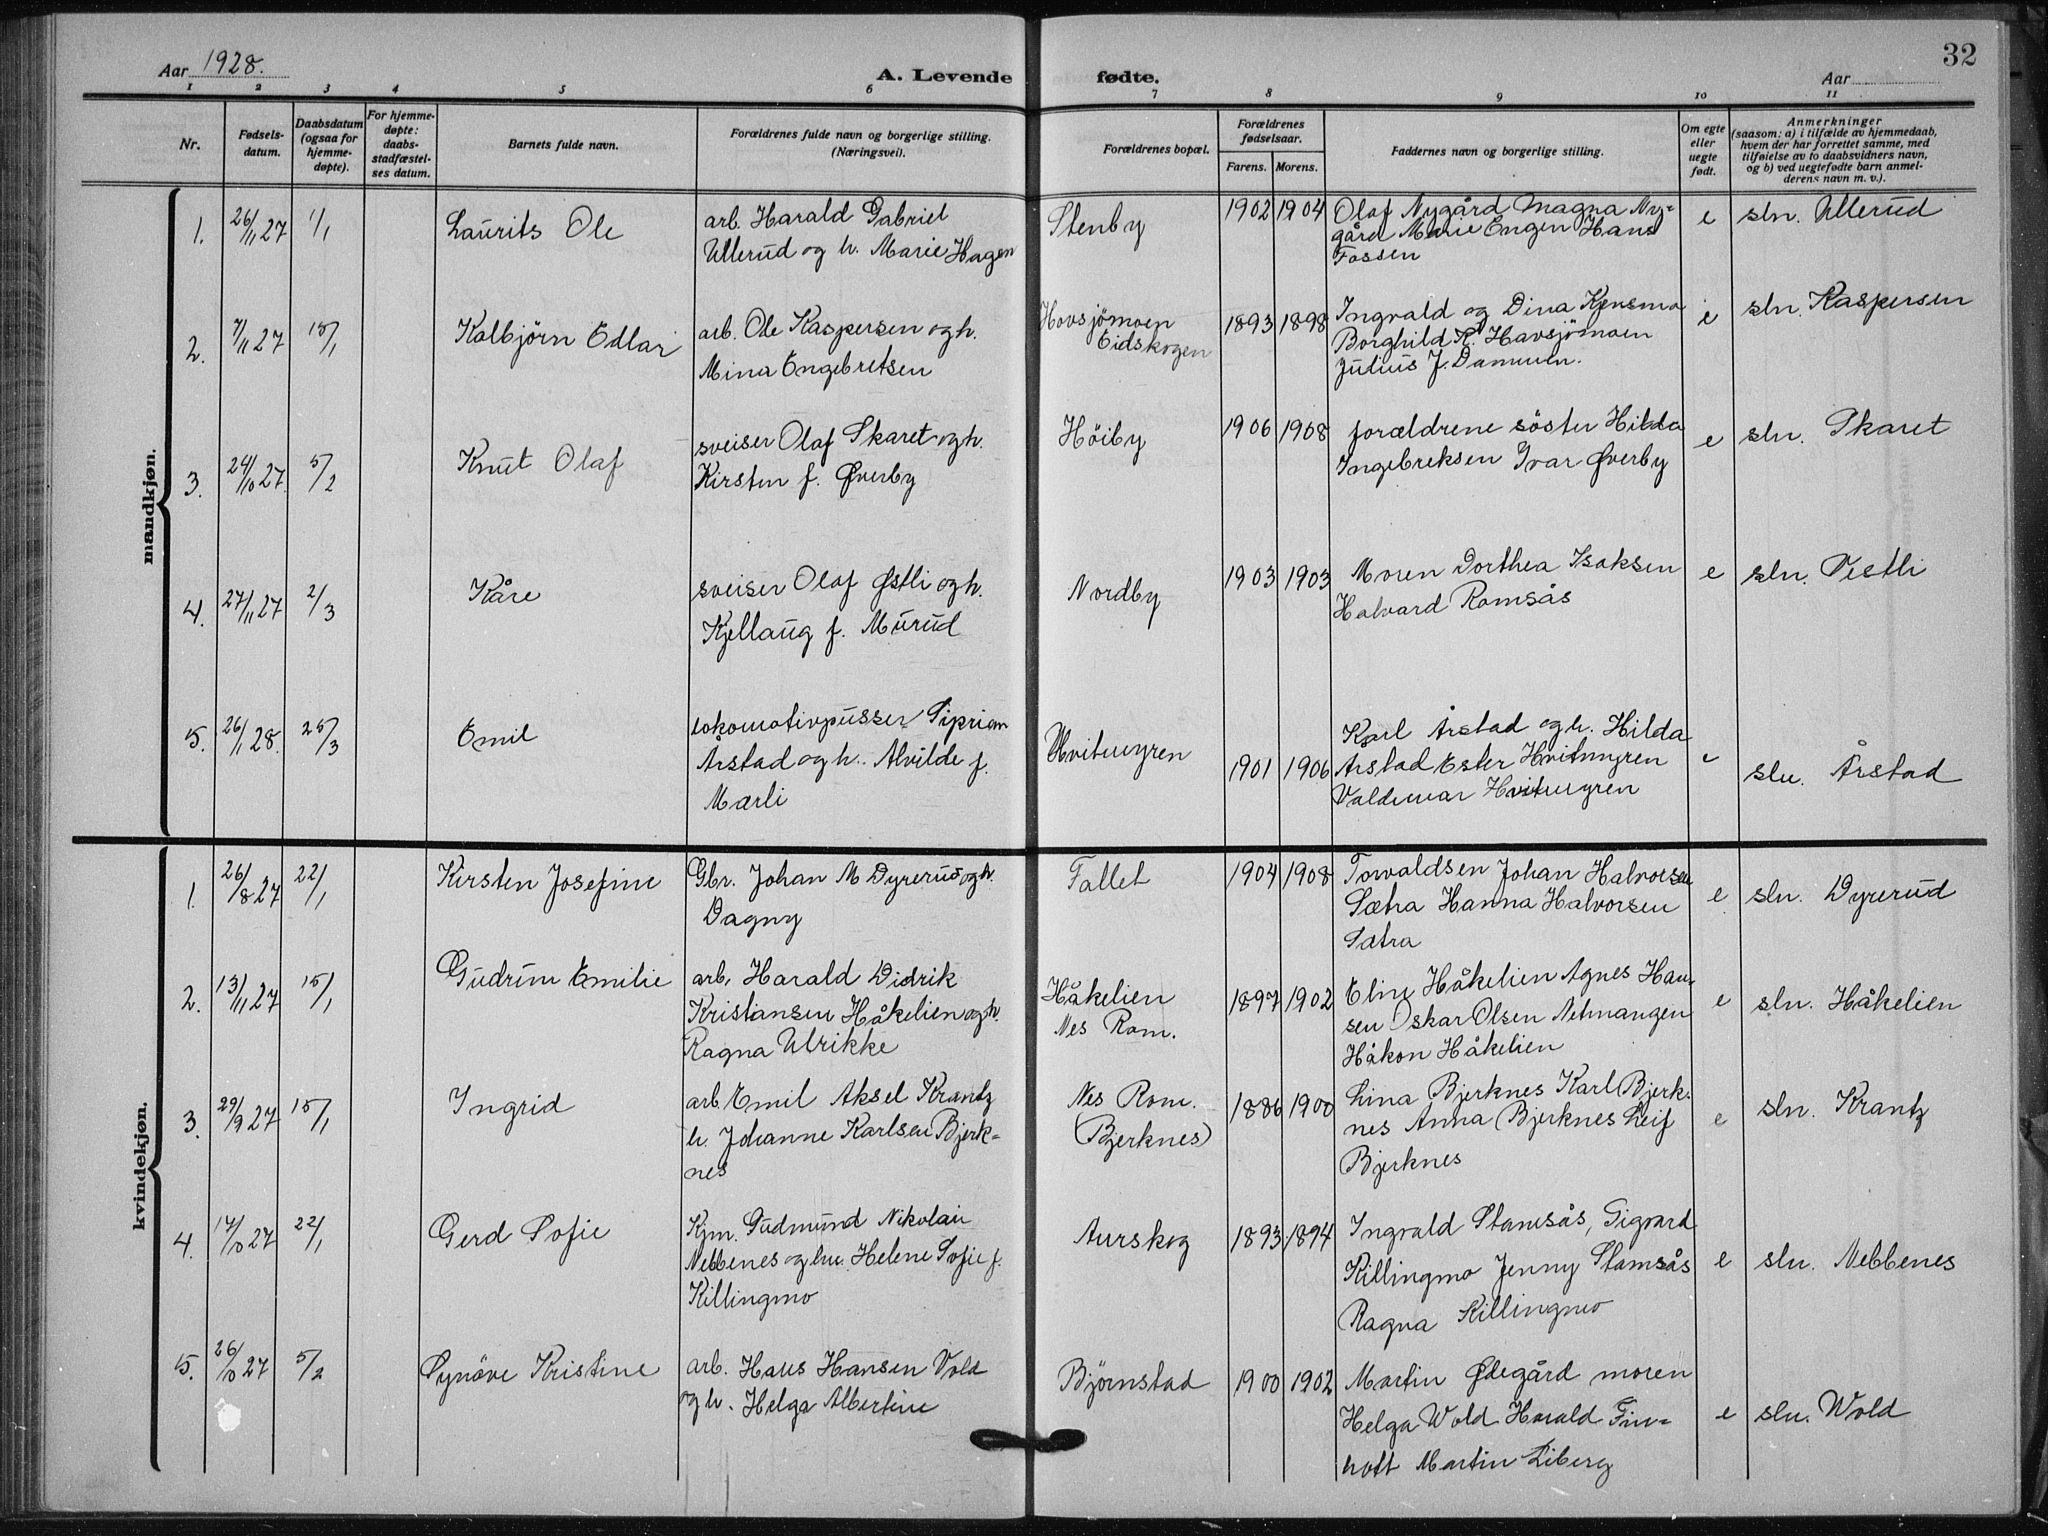 Aar 1928.
A. Levende fødte.
Aar
32
1 2 3 4 5 6 7 8 9 10 11
Nr.
Fødsels-
datum.
Daabsdatum
(ogsaa for
hjemme-
døpte).
For hjemme-
døpte:
daabs-
stadfæstel-
ses datum.
Barnets fulde navn.
Forældrenes fulde navn og borgerlige stilling.
(Næringsvei).
Forældrenes bopæl.
Forældrenes
fødselsaar.
Farens. Morens.
Faddernes navn og borgerlige stilling.
Om egte
eller
uegte
født.
Anmerkninger
(saasom: a) i tilfælde av hjemmedaab,
hvem der har forrettet samme, med
tilføielse av to daabsvidners navn,
og b) ved uegtefødte barn anmel-
derens navn m. v.).
mandkjøn.
1. 26/11 27 1/1 Laurits Ole
arb. Harald Gabriel
Ullerud og h. Marie Hagen
Stenby
1902 1904
Olaf Nygård Magna Ny-
gård Marie Engen Hans
Fossen
e sln. Ullerud
2. 7/11 27 15/1 Kolbjörn Edlar
arb. Ole Kaspersen og h.
Mina Engebretsen
Hovsjömoen
Eidskogen
1893 1898
Ingvald og Dina Kjensmo
Borghild K. Havsjömoen
Julius J.
e sln. Kaspersen
3. 24/10 27. 5/2 Knut Olaf
sveiser Olaf Skaret og h.
Kirsten f. Øverby
Höiby
1906 1908
forældrene söster Hilda
Ingebreksen Ivar Øverby
e sln. Skaret
4. 27/11 27 2/3 Kåre
sveiser Olaf Østli og h.
Kjellaug f. Murud
Nordby
1903 1903
Moren Dorthea Isaksen
Halvard Romsås
e sln. Vestli
5. 26/1 28. 25/3 Emil
lokomotivpusser Siprian
Årstad og h. Alvilde f.
Mærli
Hvitmyren
1901 1906
Karl Årstad og h. Hilda
Årstad Ester Hvitmyren
Valdemar Hvitmyren
e sln. Årstad
kvindekjøn.
1. 26/8 27 22/1 Kirsten Josefine
Gbr. Johan M Dyrerud og h.
Dagny
Fallet
1904 1908
Torvaldsen Johan Halvorsen
Sætra Hanna Halvorsen
Sætra
e sln. Dyrerud
2. 13/11 27 15/1 Gudrun Emilie
arb. Harald Didrik
Kristiansen Håkelien og h.
Ragna Ulrikke
Håkelien
Nes Rom.
1897 1902
Eline Håkelien Agnes Han-
sen Oskar Olsen Netmangen
Håkon Håkelien
e sln. Håkelien
3. 29/9 27 15/1 Ingrid
arb. Emil Aksel Krantz
h. Johanne Karlsen Bjerk-
nes
Nes Rom.
(Bjerknes)
1886 1900
Lina Bjerknes Karl Bjerk-
nes Anna Bjerknes Leif
Bjerknes
e sln. Krantz
4. 17/10 27 22/1 Gerd Sofie
Kjm. Gudmund Nikolai
Nebbenes og hu. Helene Sofie f.
Killingmo
Aurskog
1893 1894
Ingvald Stamsås, Sigvard
Killingmo Jenny Stamsås
Ragna Killingmo
e sln. Nebbenes
5. 26/10 27 5/2 Synöve Kristine
arb. Hans Hansen Vold
og h. Helga Albertine
Björnstad
1900 1902
Martin Ødegård moren
Helga Wold Harald Fin-
holt Martin Liberg
e sln. Wold